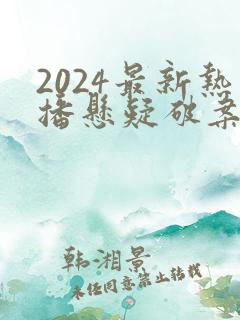 2024最新热
播悬疑破案
韩湘景
未经同意禁止转载